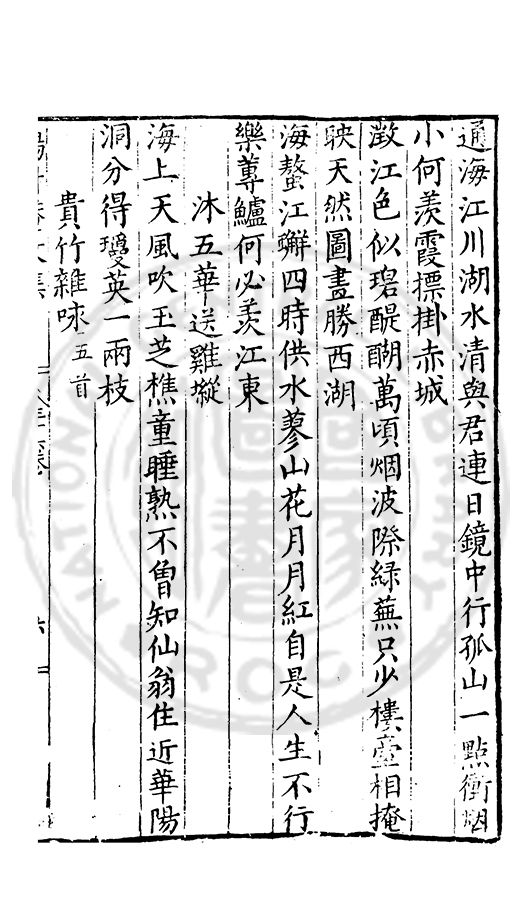 通海江川湖水清與君連日鏡中行孤山一點衝烟
小何羨霞摽掛赤城
澂江色似碧醍醐萬頃烟波際綠蕪只少樓臺相掩
映天然圖畫勝西湖
海螯江蠏四時供水蓼山花月月紅自是人生不行
樂蓴鱸何必羨江東
沐五華送雞㙡
海上天風吹玉芝樵童睡熟不曾知仙翁住近華陽
洞分得瓊英一兩枝
貴竹雜咏五首